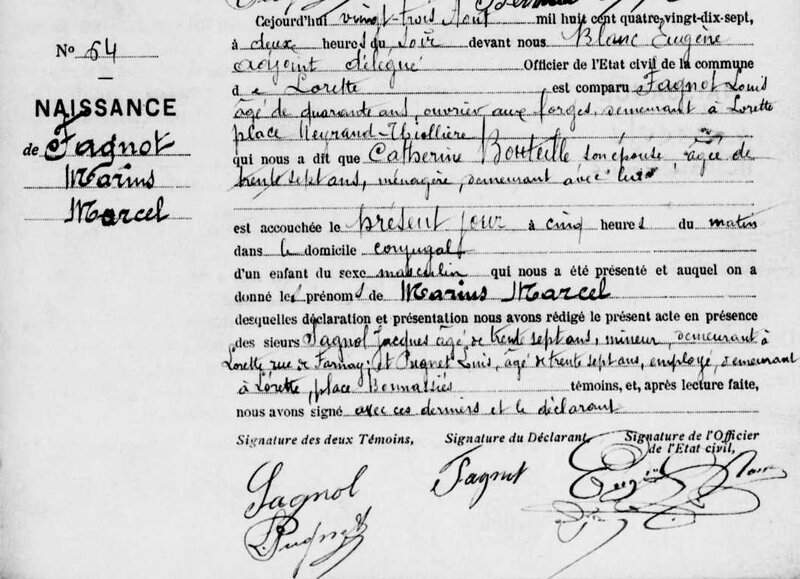 Cejourd'hui vingt-trois Août mil huit cent quatre-vingt-dix-sept,
à deux heures du soir devant nous Blanc Eugène
adjoint délégué Officier de l'Etat civil de la commune
de Lorette est comparu Fagnot Louis
âgé de quarante ans, ouvrier aux forges, demeurant à Lorette
place Neyrand-Thiollière
qui nous a dit que Catherine Bouteille son épouse, âgée de
trente sept ans, ménagère, demeurant avec lui
est accouchée le présent jour à cinq heures du matin
dans le domicile conjugal
d'un enfant du sexe masculin qui nous a été présenté et auquel on a
donné les prénoms de Marius Marcel
desquelles déclaration et présentation nous avons rédigé le présent acte en présence
des sieurs Sagnol Jacques âgé de trente sept ans, mineur, demeurant à
Lorette rue de Farnay; et Pugnet Louis, âgé de trente sept ans, employé, demeurant
à Lorette, place Bonnassiès témoins, et, après lecture faite,
nous avons signé avec ces derniers et le déclarant
Signature des deux Témoins, Signature du Déclarant, Signature de l'Officier
de l'Etat civil,
Sagnol Fagnot Eugène Blanc
L. Pugnet
N° 64
NAISSANCE
de Fagnot
Marius
Marcel